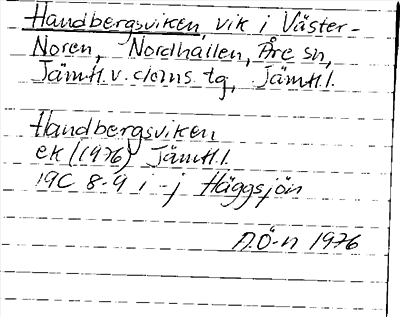 Handbergsviken, vik i Väster-
Noren, Nordhallen, Åre sn,
Jämtl. v. doms. tg, Jämtl l.
Handbergsviken
ek (1976) Jämtl l.
19C 8-9 i - j Häggsjön
A.Ö-n 1976